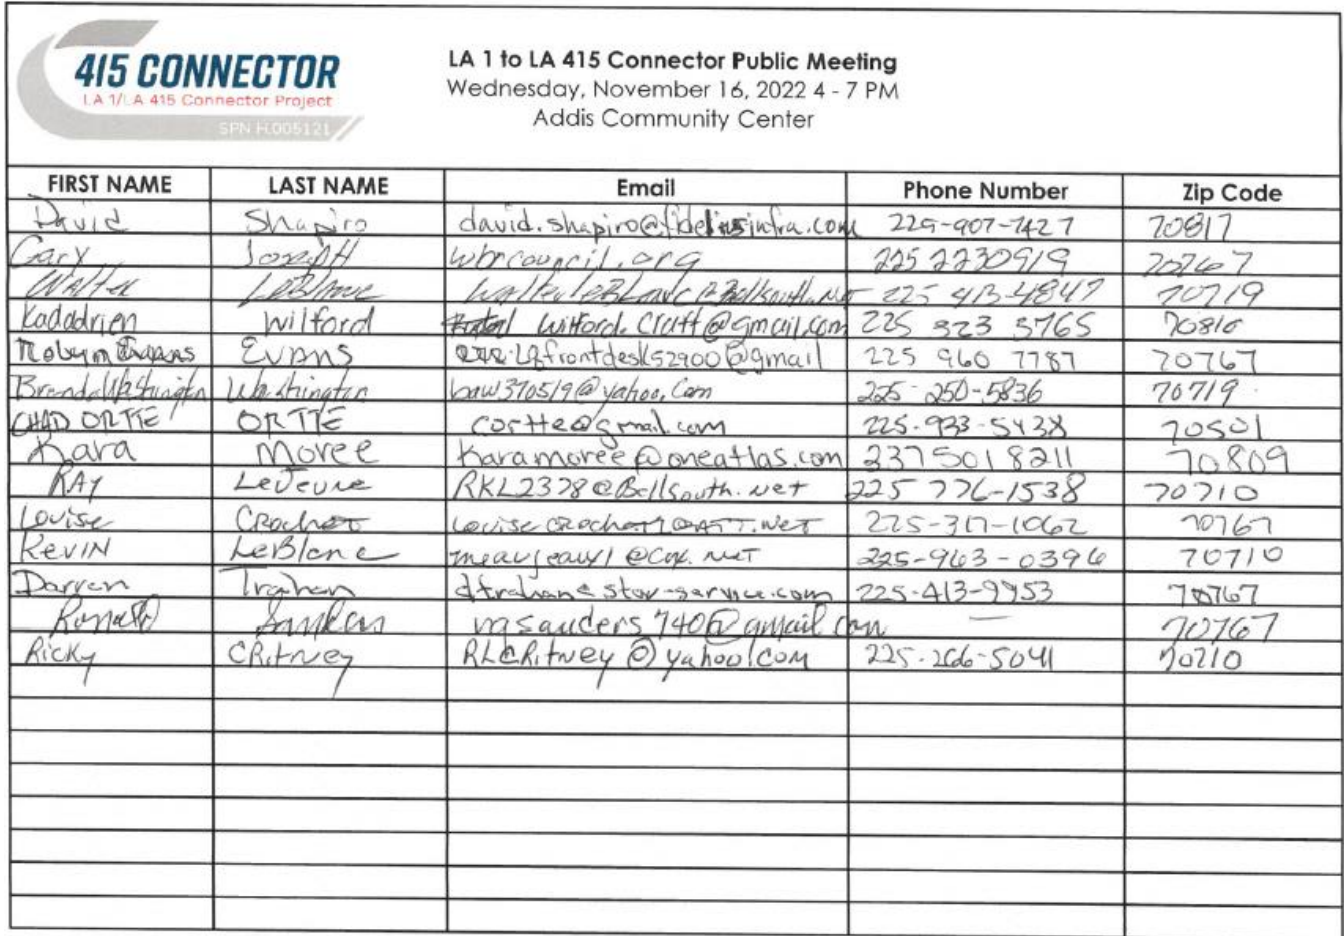 415 CONNECTOR
LA 1/LA 415 Connector Project
SPN H.005121
LA 1 to LA 415 Connector Public Meeting
Wednesday, November 16, 2022 4 - 7 PM
Addis Community Center
FIRST NAME LAST NAME Email Phone Number Zip Code
David Shapiro david.shapiro@fideliusinfra.com 225-907-7427 70817
Gary Joseph wbrcouncil.org 225 2230919 70767
Walter LeBlanc WalterLeBlanc@Bellsouth.net 225 413-4847 70719
Kadadrien Wilford Wilford.Craft@gmail.com 225 323 3765 70810
Robyn Evans Evans frontdesk52900@gmail 225 960 7787 70767
Brenda Washington Washington baw370519@yahoo.com 225-250-5836 70719
CHAD ORTTE ORTTE cortte@gmail.com 225-933-5438 70501
Kara Moree karamoree@oneatlas.com 337 501 8211 70809
RAY LeJeune RKL2378@Bellsouth.net 225 776-1538 70710
Louise Crochet 225-317-1062 70767
Kevin LeBlanc meaujeaux1@Cox.net 225-963-0396 70710
Darren Trahan dtrahan@star-service.com 225-413-9953 70767
Ronald 740@gmail.com — 70767
Ricky CRitney RLCRitney@yahoo!com 225-266-5041 70710